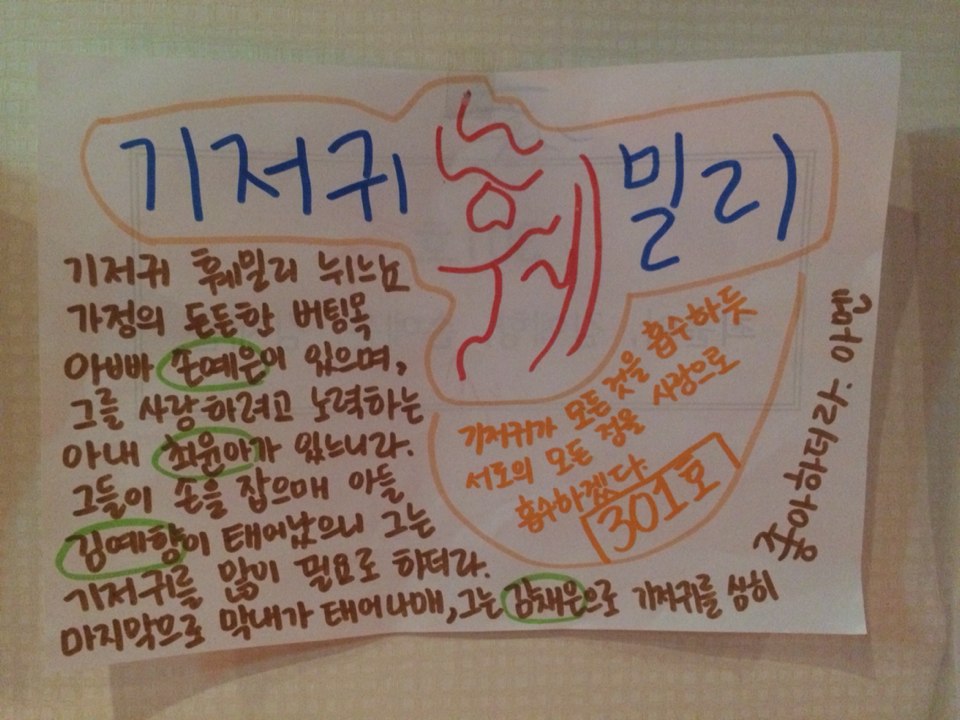 기저귀 훼밀리
기저귀 훼밀리 뉘느뇨
가정의 든든한 버팀목
아빠빠 손예은이 있으며,
그를 사랑하려고 노력하는
아내 최윤아가 있느니라.
그들이 손을 잡으매 아들
김예향이 태어났으니 그는
기저귀를 많이 필요로 하더라.
마지막으로 막내가 태어나매, 그는 김채운으로 기저귀를 심히
좋아하더라. 아멘
기저귀가 모든 것을 흡수하듯
서로의 모든 점을 사랑으로
흡수하겠다.
301호